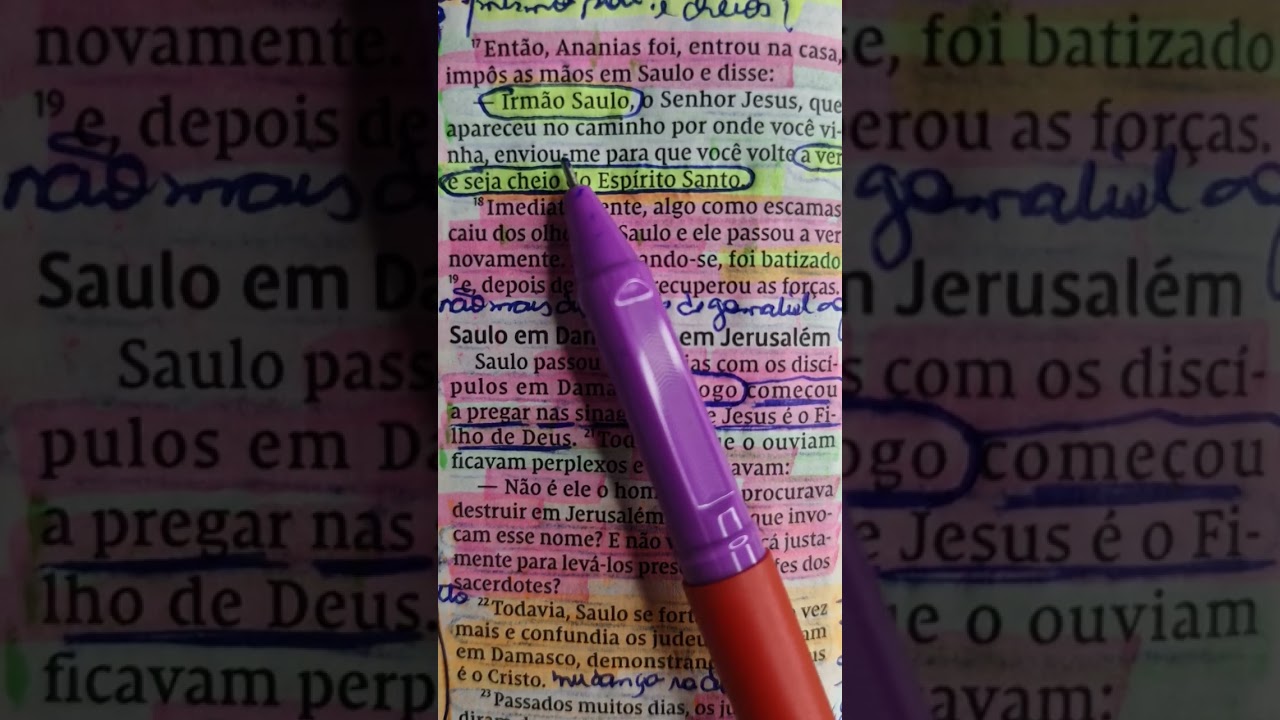 17 Então, Ananias foi, entrou na casa,
impôs as mãos em Saulo e disse:
— Irmão Saulo, o Senhor Jesus, que
apareceu no caminho por onde você vi-
nha, enviou-me para que você volte a ver
e seja cheio do Espírito Santo.
18 Imediatamente, algo como escamas
caiu dos olhos Saulo e ele passou a ver
novamente. ando-se, foi batizado
19 e, depois de recuperou as forças.
não mais gamaliel
Saulo em Dam em Jerusalém
Saulo passou ias com os discí-
pulos em Dama ogo começou
a pregar nas sinag e Jesus é o Fi-
lho de Deus. 21 Tod e o ouviam
ficavam perplexos e avam:
— Não é ele o hom procurava
destruir em Jerusalém que invo-
cam esse nome? E não cá justa-
mente para levá-los pres fes dos
sacerdotes?
22 Todavia, Saulo se fort vez
mais e confundia os judeu am
em Damasco, demonstran us
é o Cristo. mudança
23 Passados muitos dias, os ju